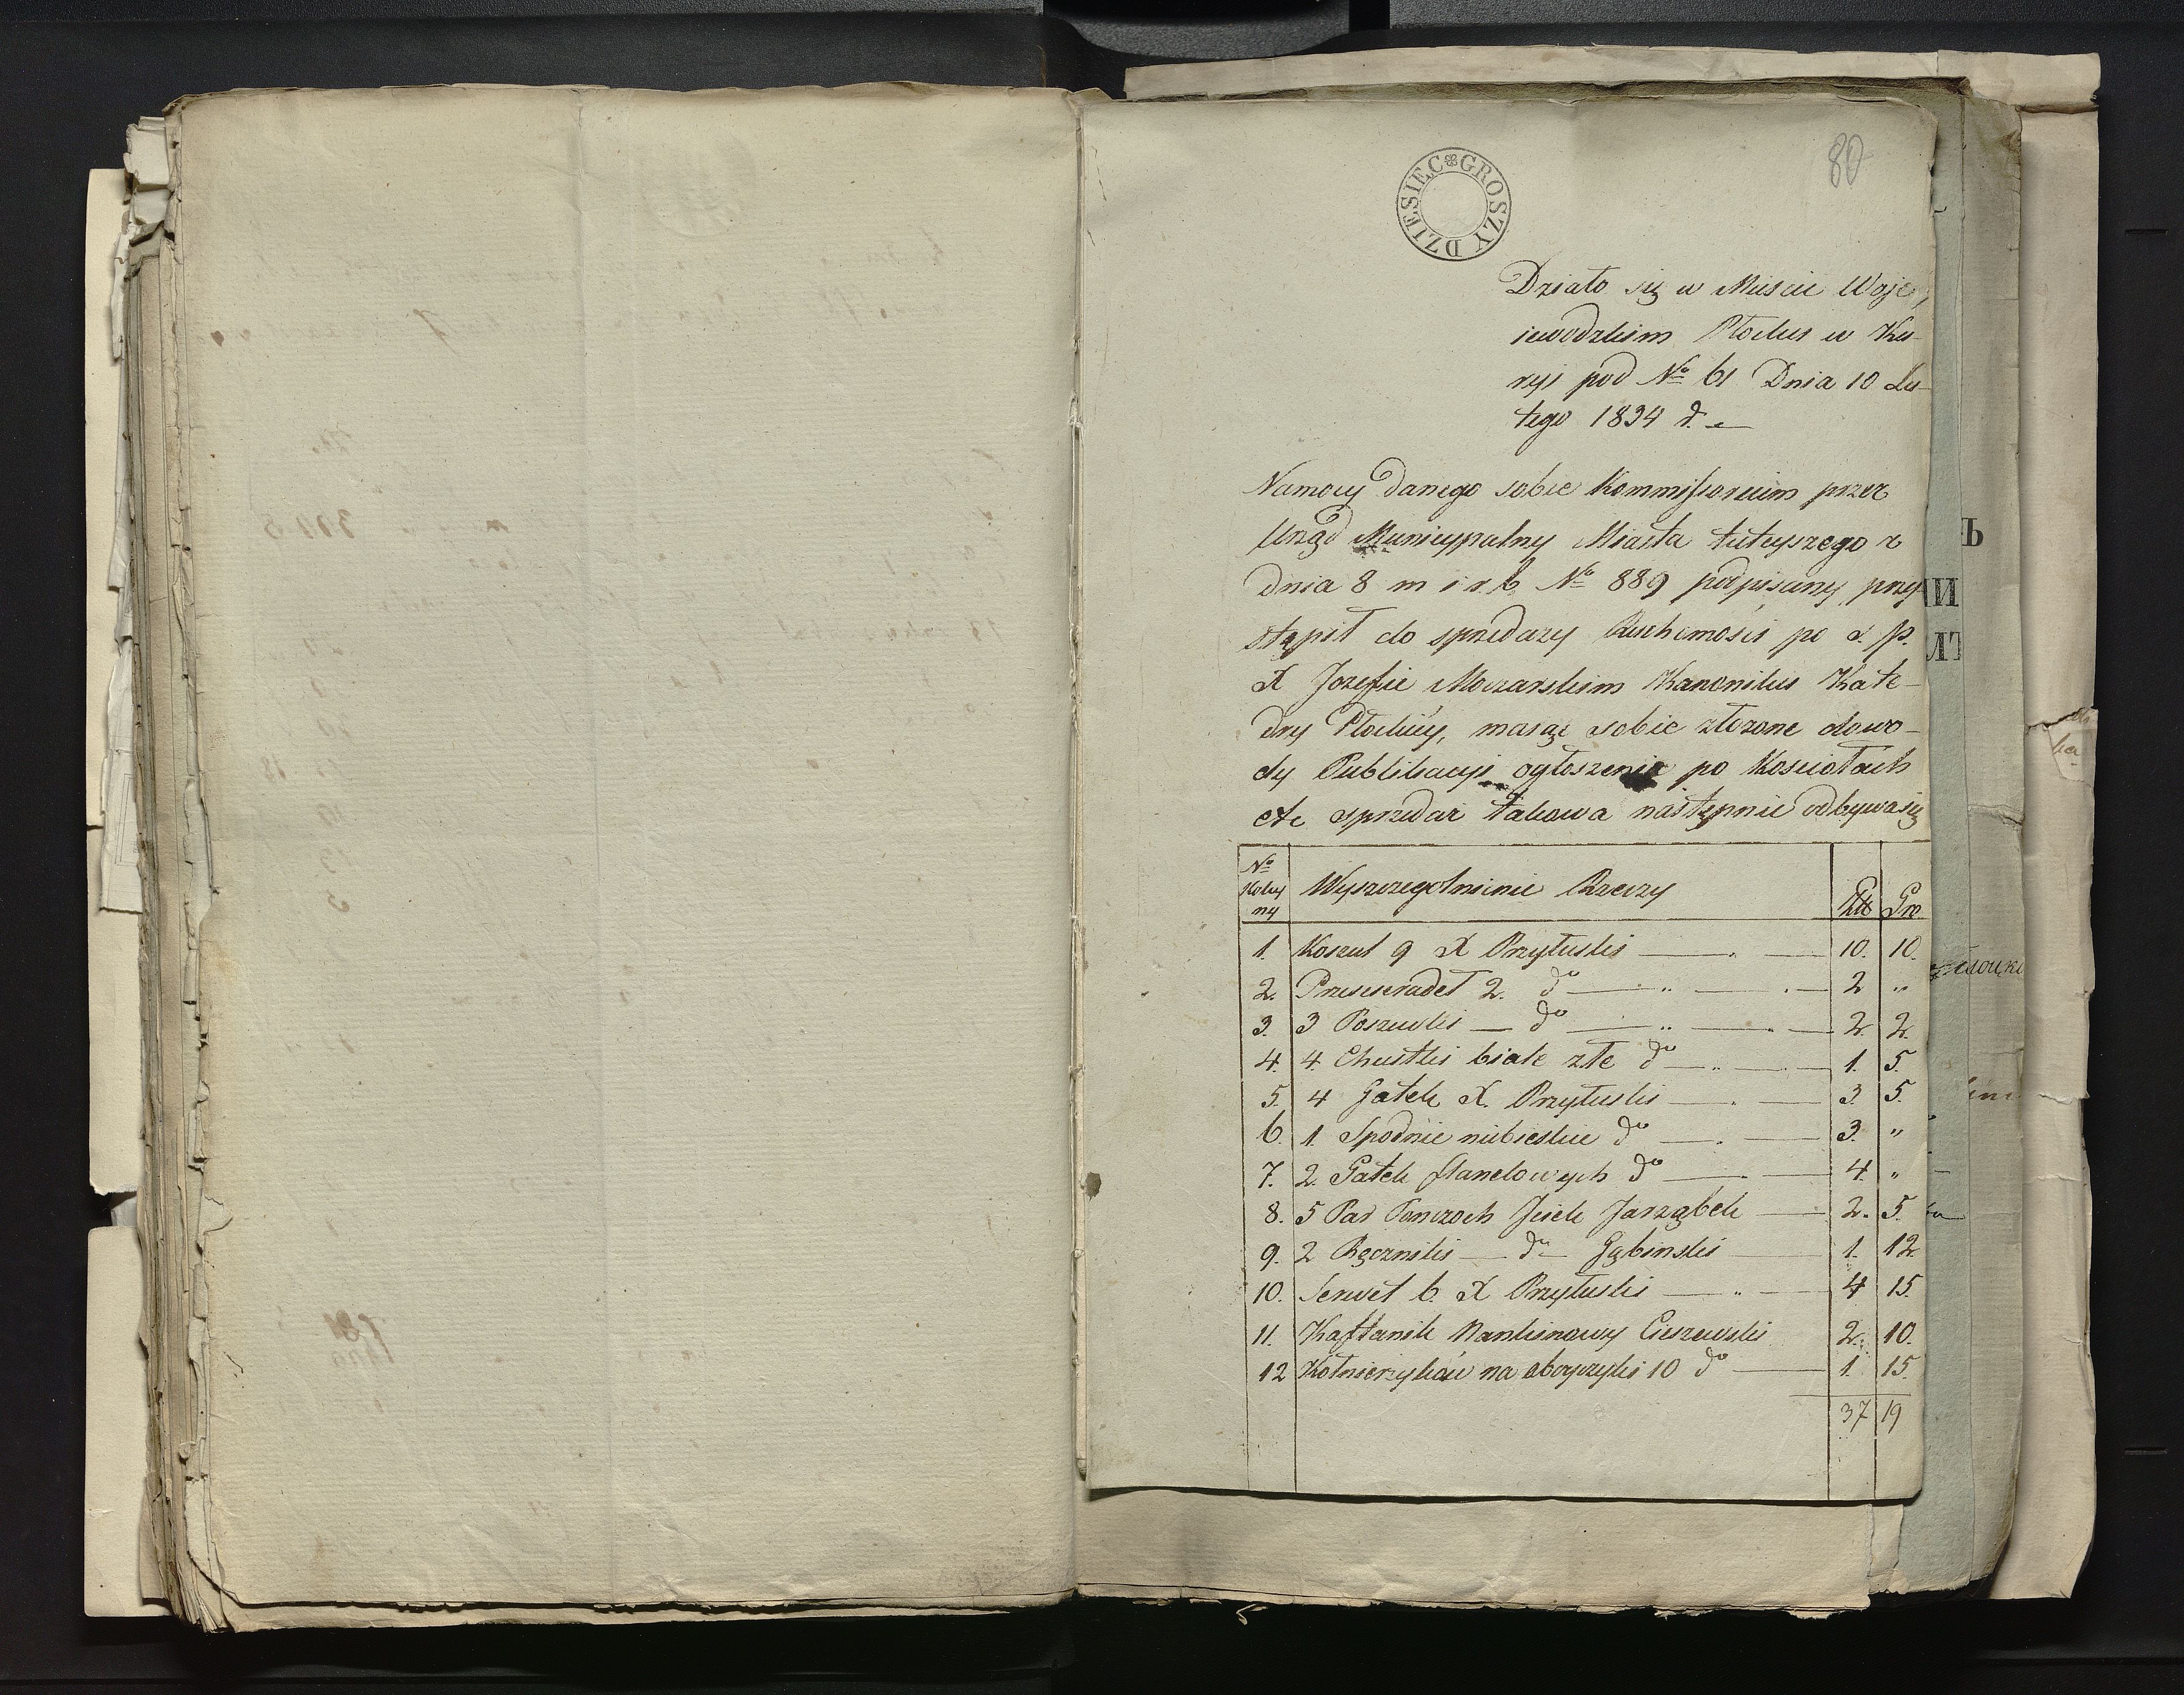 80
DZIESIEC GROSZY
Działo się w Mieście Woje,
iewodzkim Płocku w Ku-
ryi pod No 61 Dnia 10 Lu-
tego 1834 r.
Namocy danego sobie Kommissorium przez
Urząd Municypalny Miasta tuteyszego z
dnia 8 m i r. b. No 889 podpisany przy-
stąpił do sprzedaży Ruchomości po ś. p.
X Jozefie Moczarskim Kanoniku Kate-
dry Płockiey, maiąc sobie złożone dowo-
dy Publikacyi ogłoszenia po Kościołach
etc sprzedaż takowa następnie odbywa się
No Koley ny Wyszczegolnienie Rzeczy Złt Gro
1. Koszul 9 X Przytuski 10. 10.
2. Prześcieradeł 2. do 2 "
3. 3 Poszewki do 2. 2.
4. 4 Chustki białe złe do 1. 5.
5. 4 Gatek X. Przytuski 3. 5.
6. 1. Spodnie niebieskie do 3. "
7. 2. Gatek flanelowych do 4. "
8. 5 Par Ponczoch Jciek Jarząbek 2. 5.
9. 2 Ręczniki do Gąbinski 1. 12
10. Serwet 6. X Przytuski 4 15.
11. Kaftanik Nankinowy Cieszewski 2. 10.
12 Kołnierzyków na oboyczyki 10 do 1. 15.
37 19